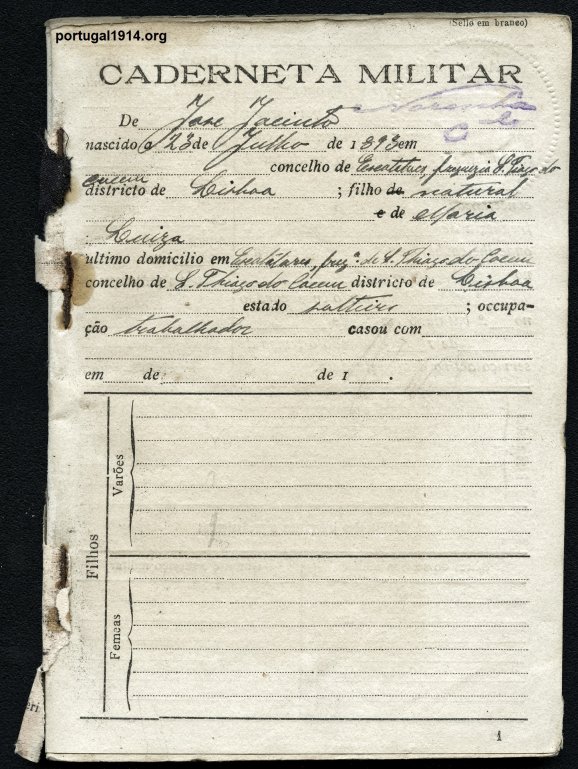 portugal1914.org
(Sello em branco)
CADERNETA MILITAR
De José Jacinto
nascido a 23 de Julho de 1893 em
concelho de freguezia S. Thiago do
Cacem
districto de Lisboa ; filho de natural
e de Maria
Luiza
ultimo domicilio em freg.ª de S. Thiago do Cacem
concelho de S. Thiago do Cacem districto de Lisboa
estado solteiro ; occupa-
ção trabalhador casou com
em de de 1 .
Filhos
Varões
Femeas
1